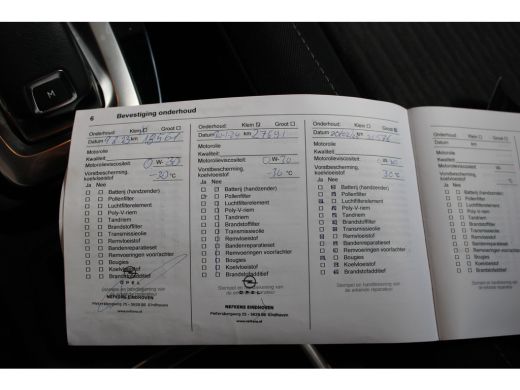 M
6 Bevestiging onderhoud
Onderhoud: Klein Groot
Datum km
Motorolie
Kwaliteit:
Motorolieviscositeit: 0 W-30
Vorstbescherming,
koelvloeistof -30 °C
Ja Nee
Batterij (handzender)
Pollenfilter
Luchtfilterelement
Poly-V-riem
Tandriem
Brandstoffilter
Transmissieolie
Remvloeistof
Bandenreparatieset
Remvoeringen voor/achter
Bougies
Koelvloeistof
Brandstofadditief
OPEL
Stempel en handtekening van
de erkende reparateur
NEFKENS EINDHOVEN
www.nefkens.nl
Onderhoud: Klein Groot
Datum km 27691
Motorolie
Kwaliteit:
Motorolieviscositeit: 0 W-30
Vorstbescherming,
koelvloeistof -30 °C
Ja Nee
Batterij (handzender)
Pollenfilter
Luchtfilterelement
Poly-V-riem
Tandriem
Brandstoffilter
Transmissieolie
Remvloeistof
Bandenreparatieset
Remvoeringen voor/achter
Bougies
Koelvloeistof
Brandstofadditief
OPEL
Stempel en handtekening van
de erkende reparateur
NEFKENS EINDHOVEN
www.nefkens.nl
Onderhoud: Klein Groot
Datum km
Motorolie
Kwaliteit:
Motorolieviscositeit: W-30
Vorstbescherming,
koelvloeistof 30 °C
Ja Nee
Batterij (handzender)
Pollenfilter
Luchtfilterelement
Poly-V-riem
Tandriem
Brandstoffilter
Transmissieolie
Remvloeistof
Bandenreparatieset
Remvoeringen voor/achter
Bougies
Koelvloeistof
Brandstofadditief
Stempel en handtekening van
de erkende reparateur
Onderhoud: Klein
Datum
km
Motorolie
Kwaliteit:
Motorolieviscositeit:
Vorstbescherming,
koelvloeistof
Ja Nee
Batterij (handzender)
Pollenfilter
Luchtfilterelement
Poly-V-riem
Tandriem
Brandstoffilter
Transmissieolie
Remvloeistof
Bandenreparatieset
Remvoeringen
Bougies
Koelvloeistof
Brandstofadditief
Stempel en handtekening van
de erkende reparateur